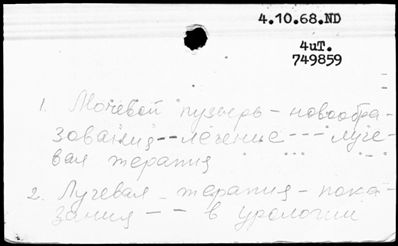 4.10.68.ND
4чT.
749859
1. Мочевой пузырь - новообра-
зования -- лечение --- луче-
вая терапия
2. Лучевая терапия - пока-
зания -- в урологии